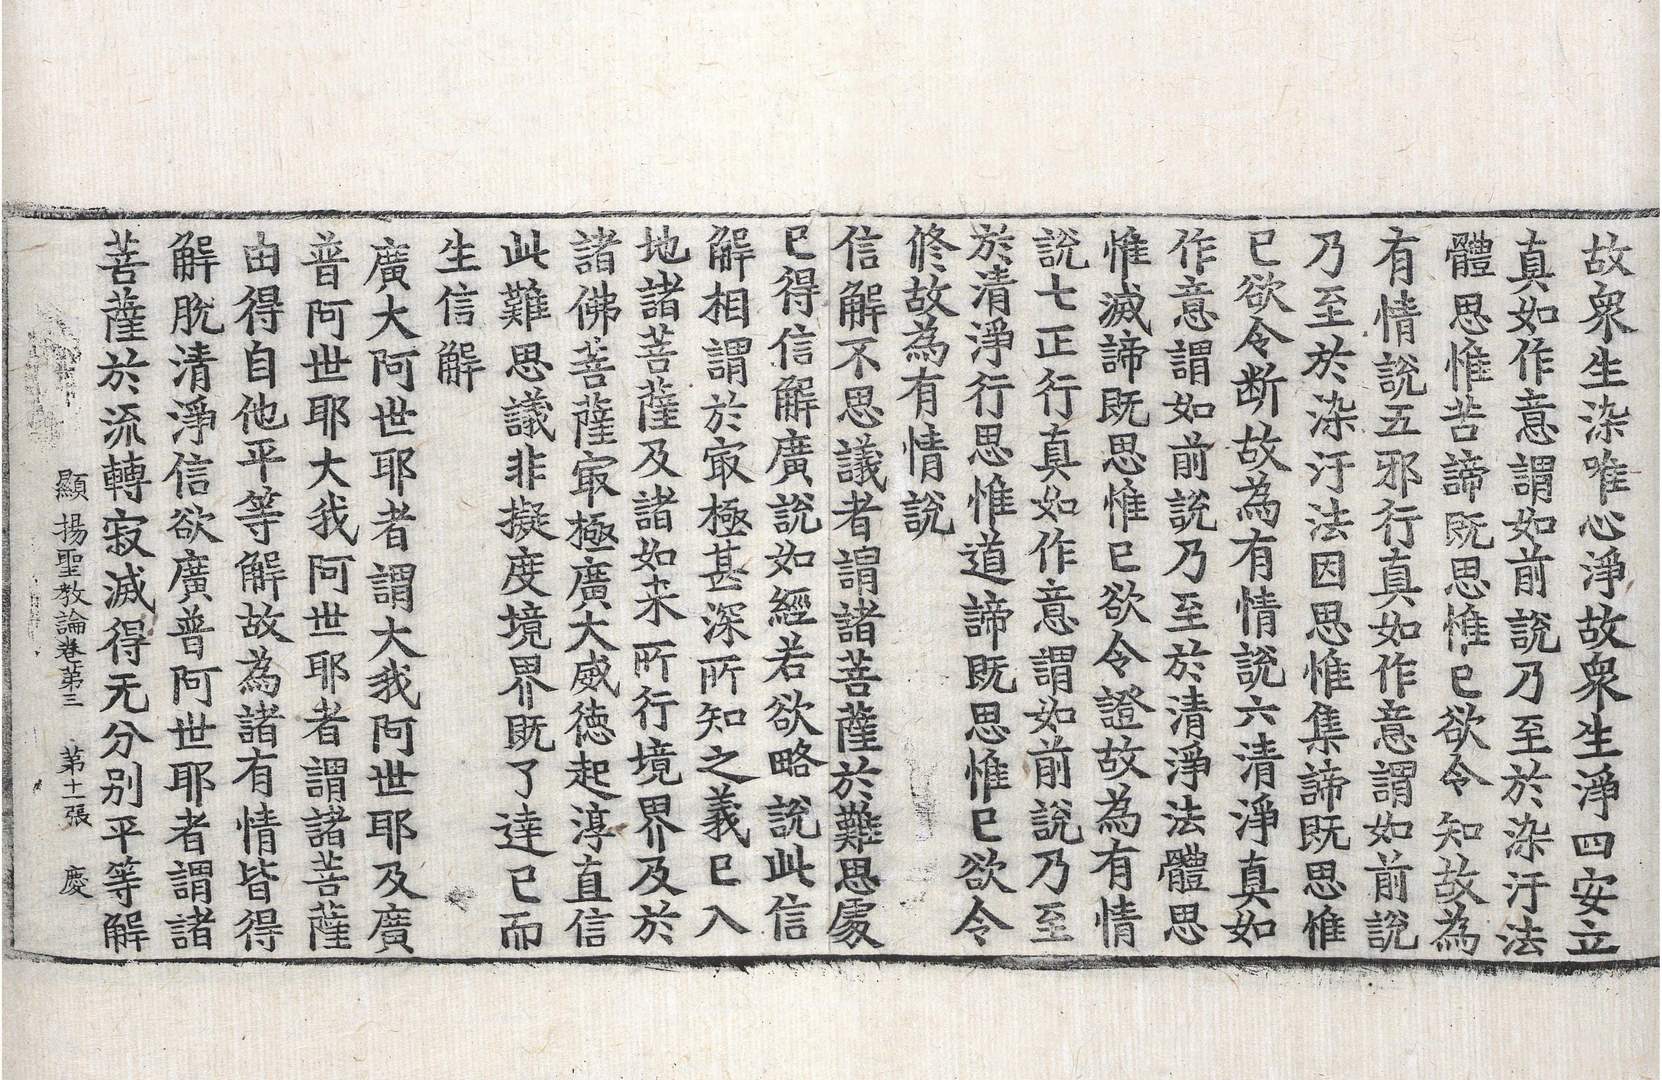 故衆生染唯心淨故衆生淨四安立
真如作意謂如前說乃至於染汙法
體思惟苦諦既思惟已欲令知故為
有情說五邪行真如作意謂如前說
乃至於染汙法因思惟集諦既思惟
已欲令断故為有情說六清淨真如
作意謂如前說乃至於清淨法體思
惟滅諦既思惟已欲令證故為有情
說七正行真如作意謂如前說乃至
於清淨行思惟道諦既思惟已欲令
修故為有情說
信解不思議者謂諸菩薩於難思處
已得信解廣說如經若欲略說此信
解相謂於㝡極甚深所知之義已入
地諸菩薩及諸如来所行境界及於
諸佛菩薩㝡極廣大威德起淳直信
此難思議非擬度境界既了達已而
生信解
廣大阿世耶者謂大我阿世耶及廣
普阿世耶大我阿世耶者謂諸菩薩
由得自他平等解故為諸有情皆得
解脫清淨信欲廣普阿世耶者謂諸
菩薩於流轉寂滅得无分別平等解
顯揚聖教論卷第三　第十一張　慶